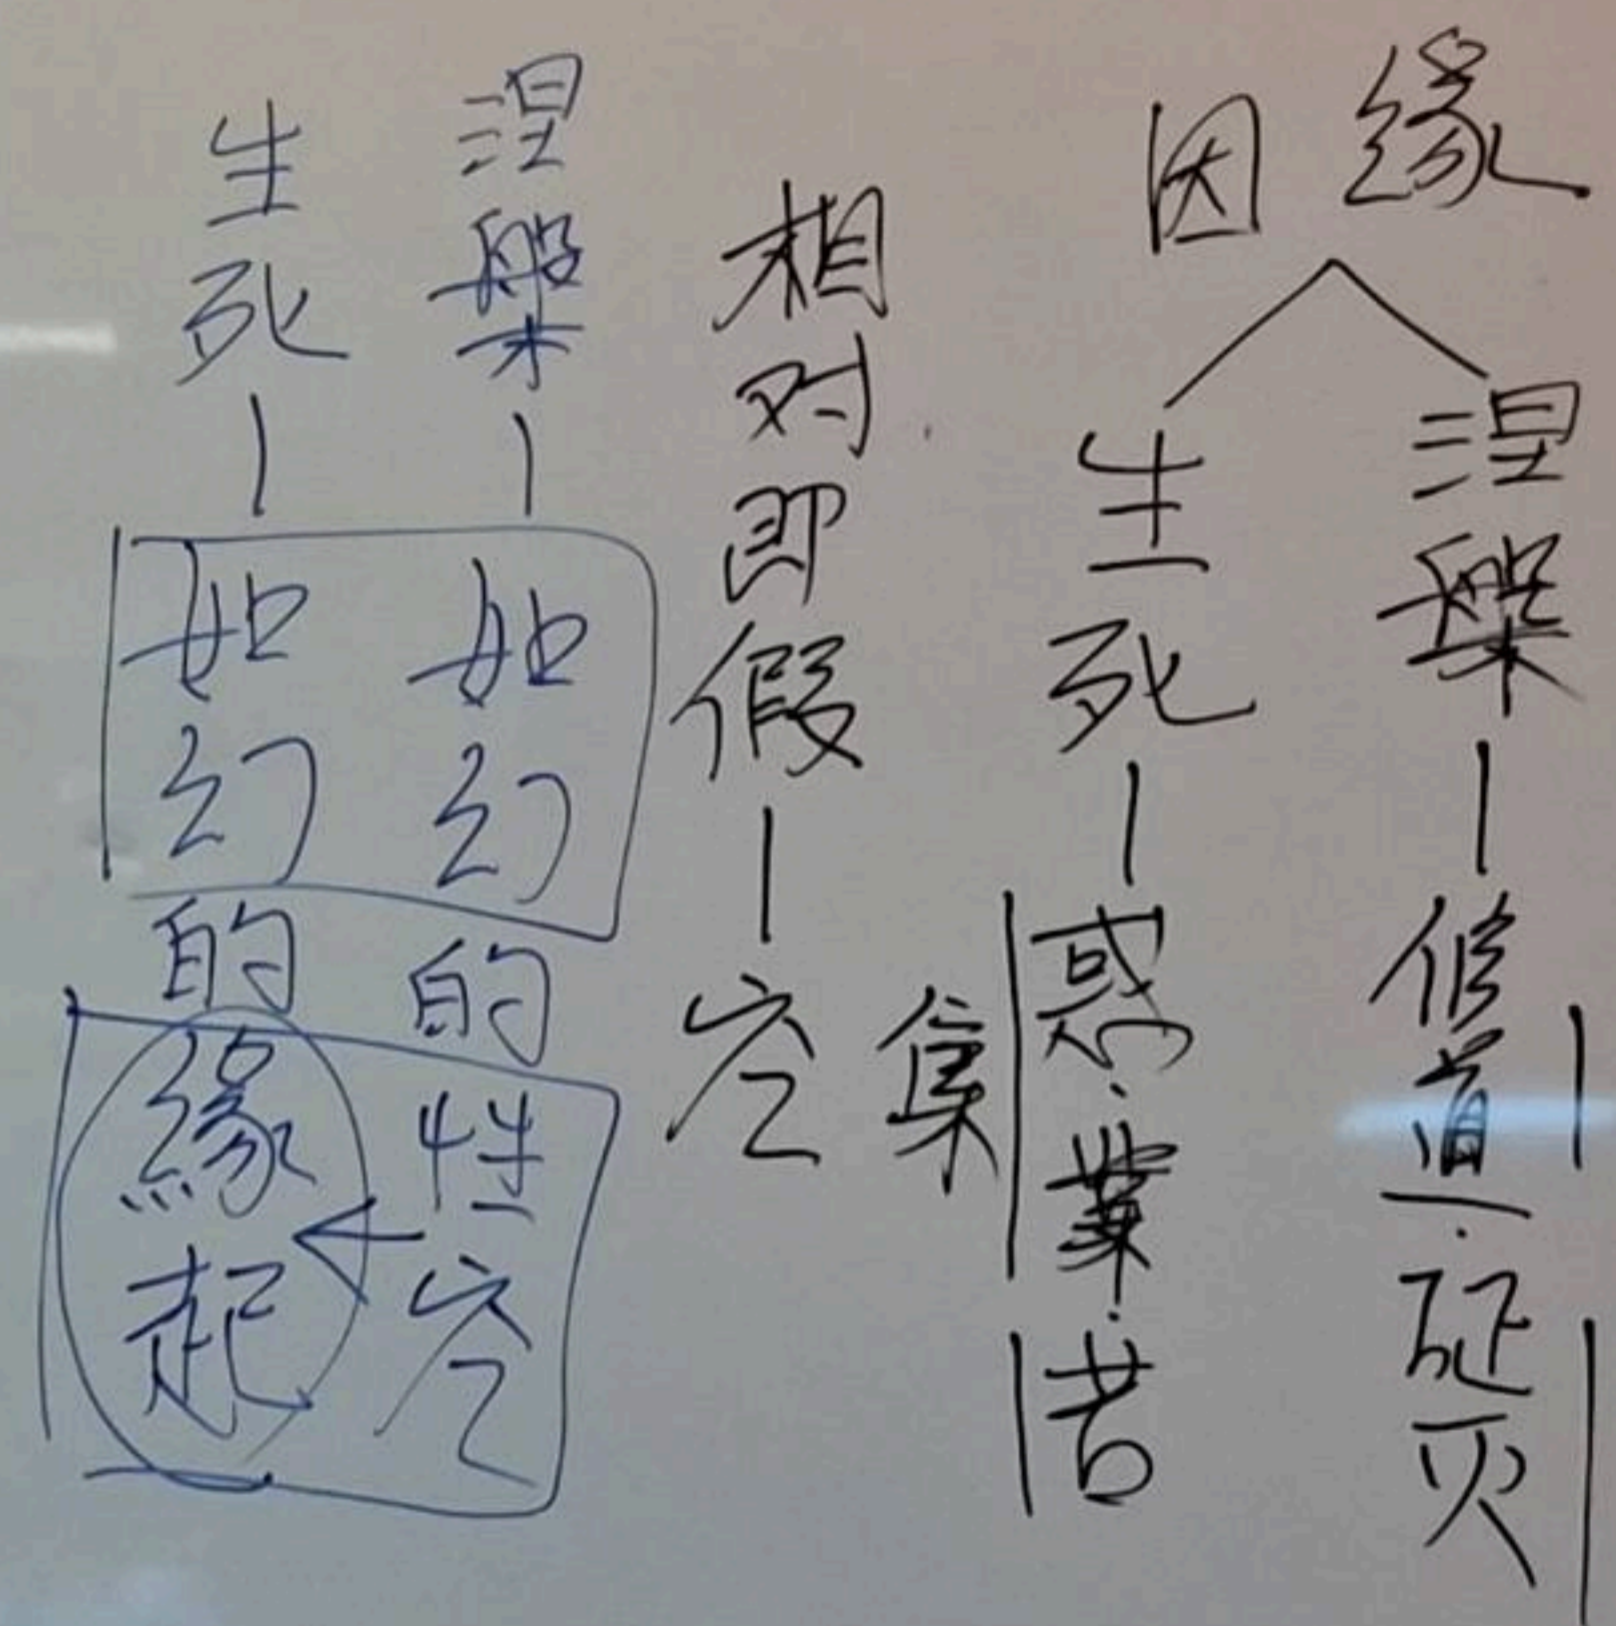 因缘
涅槃—修道·证灭
生死—惑·業·苦
集
相对即假—空
涅槃—如幻的性空
生死—如幻的緣起